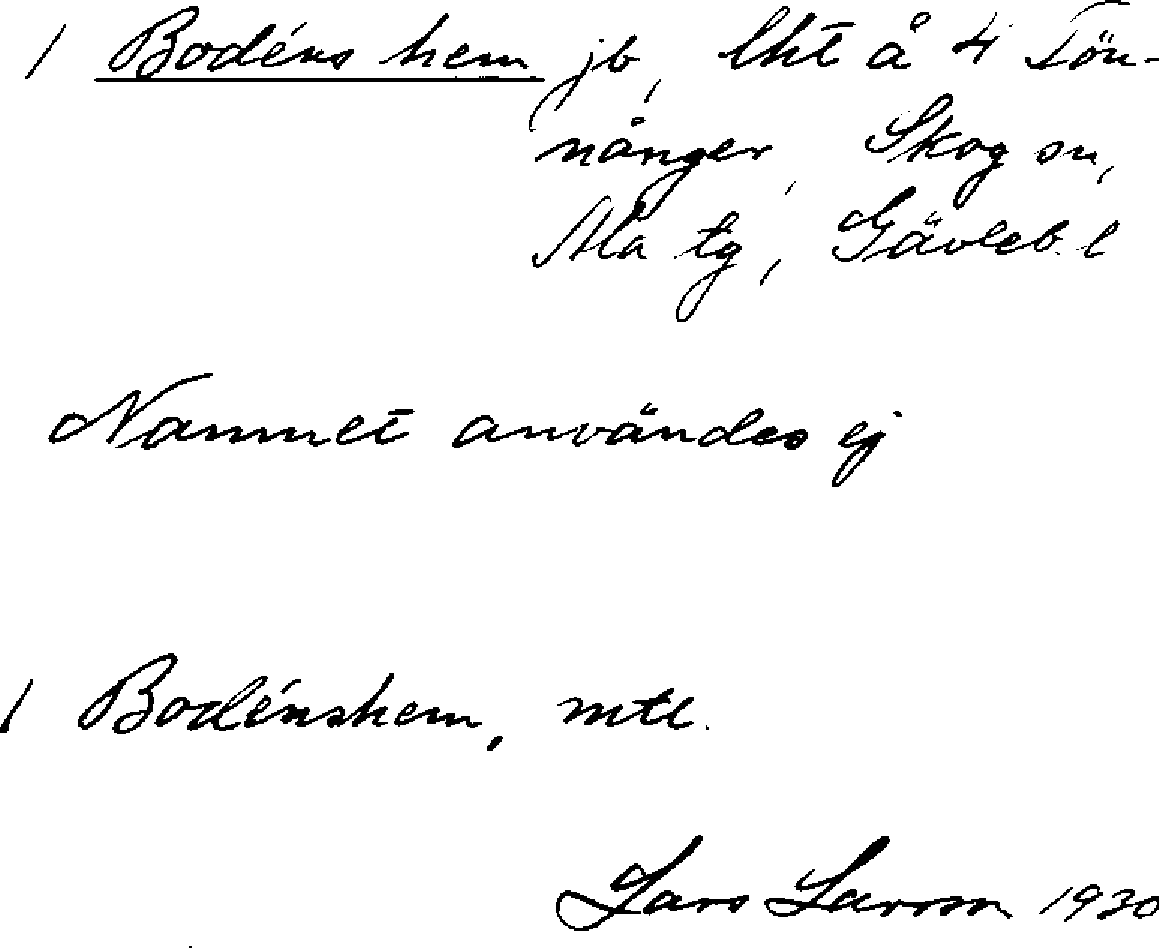 1 Bodéns hem jb, lht å 4 Tön-
nånger, Skog sn,
Ala tg, Gävleb. l
Namnet användes ej
1 Bodénshem, mtl.
Lars Larson 1930